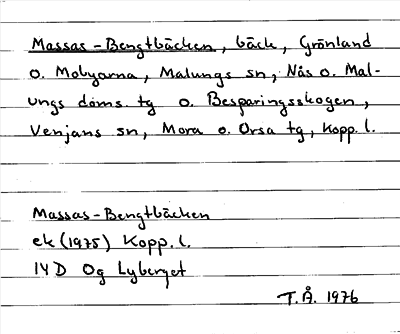 Massas-Bengtbäcken, bäck, Grönland
o. Mobyarna, Malungs sn, Nås o. Mal-
ungs doms. tg o. Besparingsskogen,
Venjans sn, Mora o. Orsa tg, Kopp. l.
Massas-Bengtbäcken
ek (1975) Kopp. l.
14D 0g Lyberget
T.Å. 1976